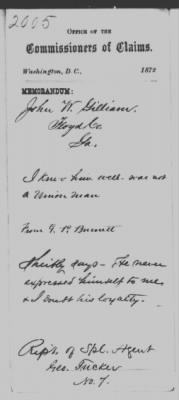 2005
OFFICE OF THE
Commissioners of Claims.
Washington, D.C., 1872
MEMORANDUM:
John W. Gilliam.
Floyd Co.
Ga.
I knew him well was not
a Union man
From P. Burnett
says He never
expressed himself to me
& I doubt his loyalty.
Rept. of Spl. Agent
Geo. Tucker
No. 7.